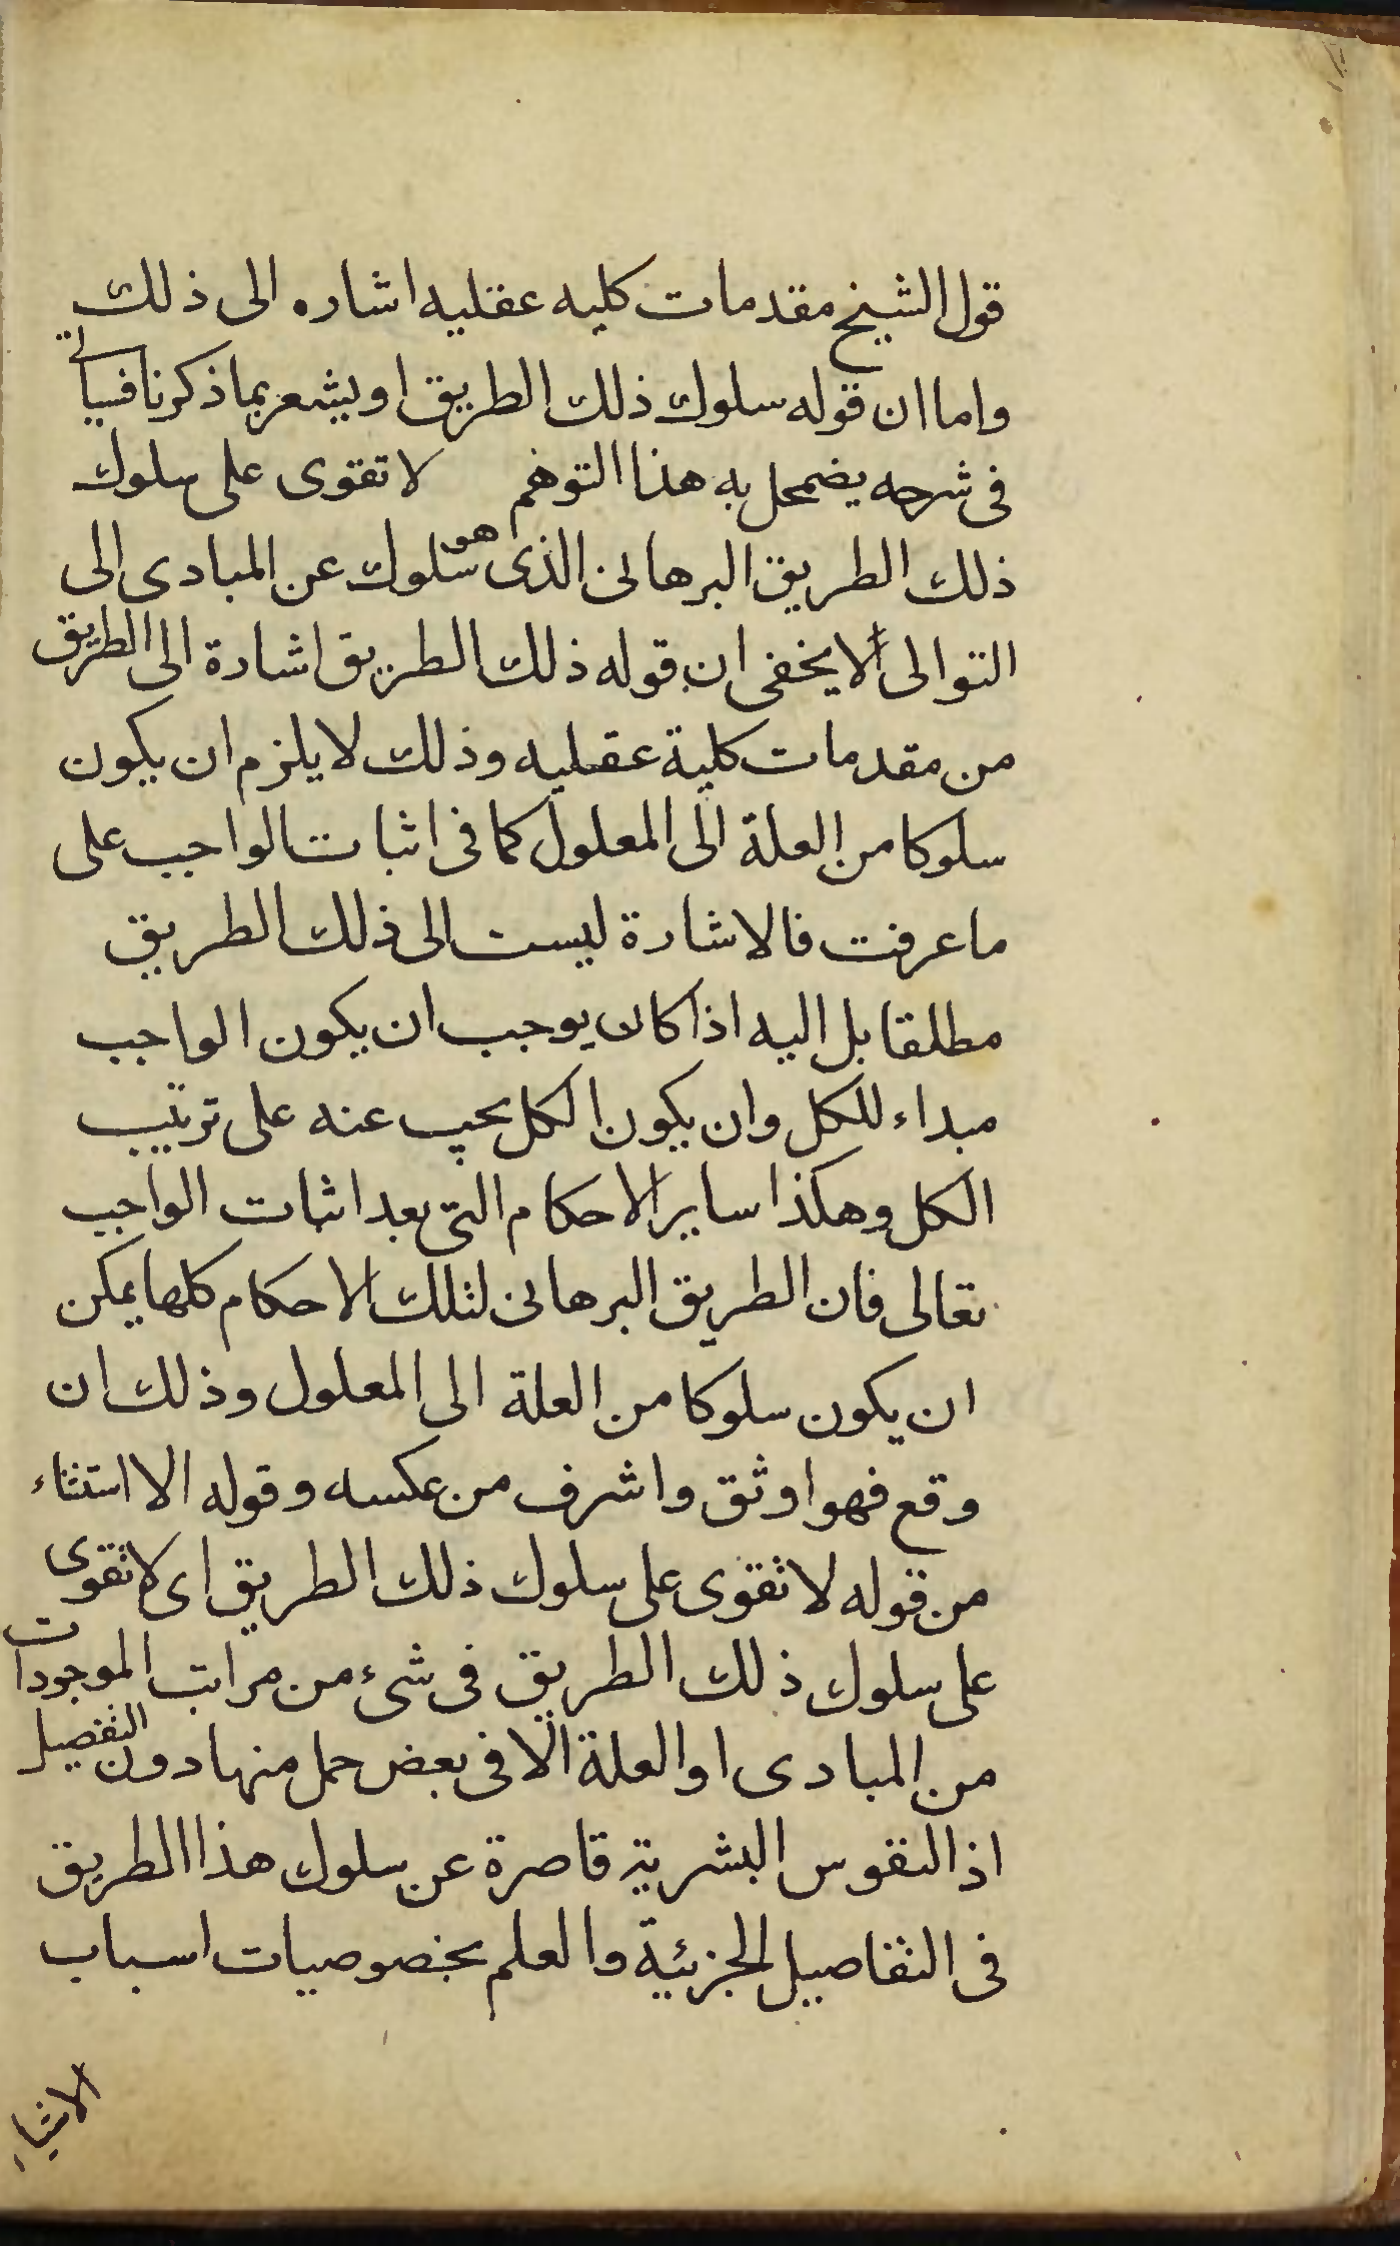 قول الشيخ مقدمات كليه عقليه اشاره الى ذلك
واما ان قوله سلوك ذلك الطريق او يشعر بما ذكرنا فسياتى
فى شرحه يضمحل به هذا التوهم لا تقوى على سلوك
ذلك الطريق البرهانى الذى هو سلوك عن المبادى الى
التوالى لا يخفى ان قوله ذلك الطريق اشارة الى الطريق
من مقدمات كلية عقليه وذلك لا يلزم ان يكون
سلوكا من العلة الى المعلول كما فى اثبات الواجب على
ما عرفت فالاشارة ليست الى ذلك الطريق
مطلقا بل اليه اذا كان يوجب ان يكون الواجب
مبداء للكل وان يكون الكل يجب عنه على ترتيب
الكل وهكذا ساير الاحكام التى بعد اثبات الواجب
تعالى فان الطريق البرهانى لتلك الاحكام كلها يمكن
ان يكون سلوكا من العلة الى المعلول وذلك ان
وقع فهو اوثق واشرف من عكسه وقوله الا استثناء
من قوله لا تقوى على سلوك ذلك الطريق اى لا تقوى
على سلوك ذلك الطريق فى شىء من مراتب الموجودات
من المبادى او العلة الا فى بعض جمل منها دون التفصيل
اذ النفوس البشرية قاصرة عن سلوك هذا الطريق
فى التفاصيل الجزئية والعلم بخصوصيات اسباب
الاشياء